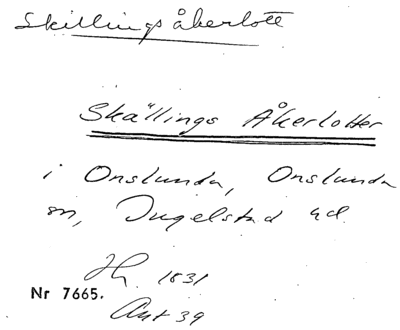 Skillingsåkerlott
Skällings Åkerlotter
i Onslunda, Onslunda
sn, Ingelstad hd.
Hy. 1831
Nr 7665.
Akt 39